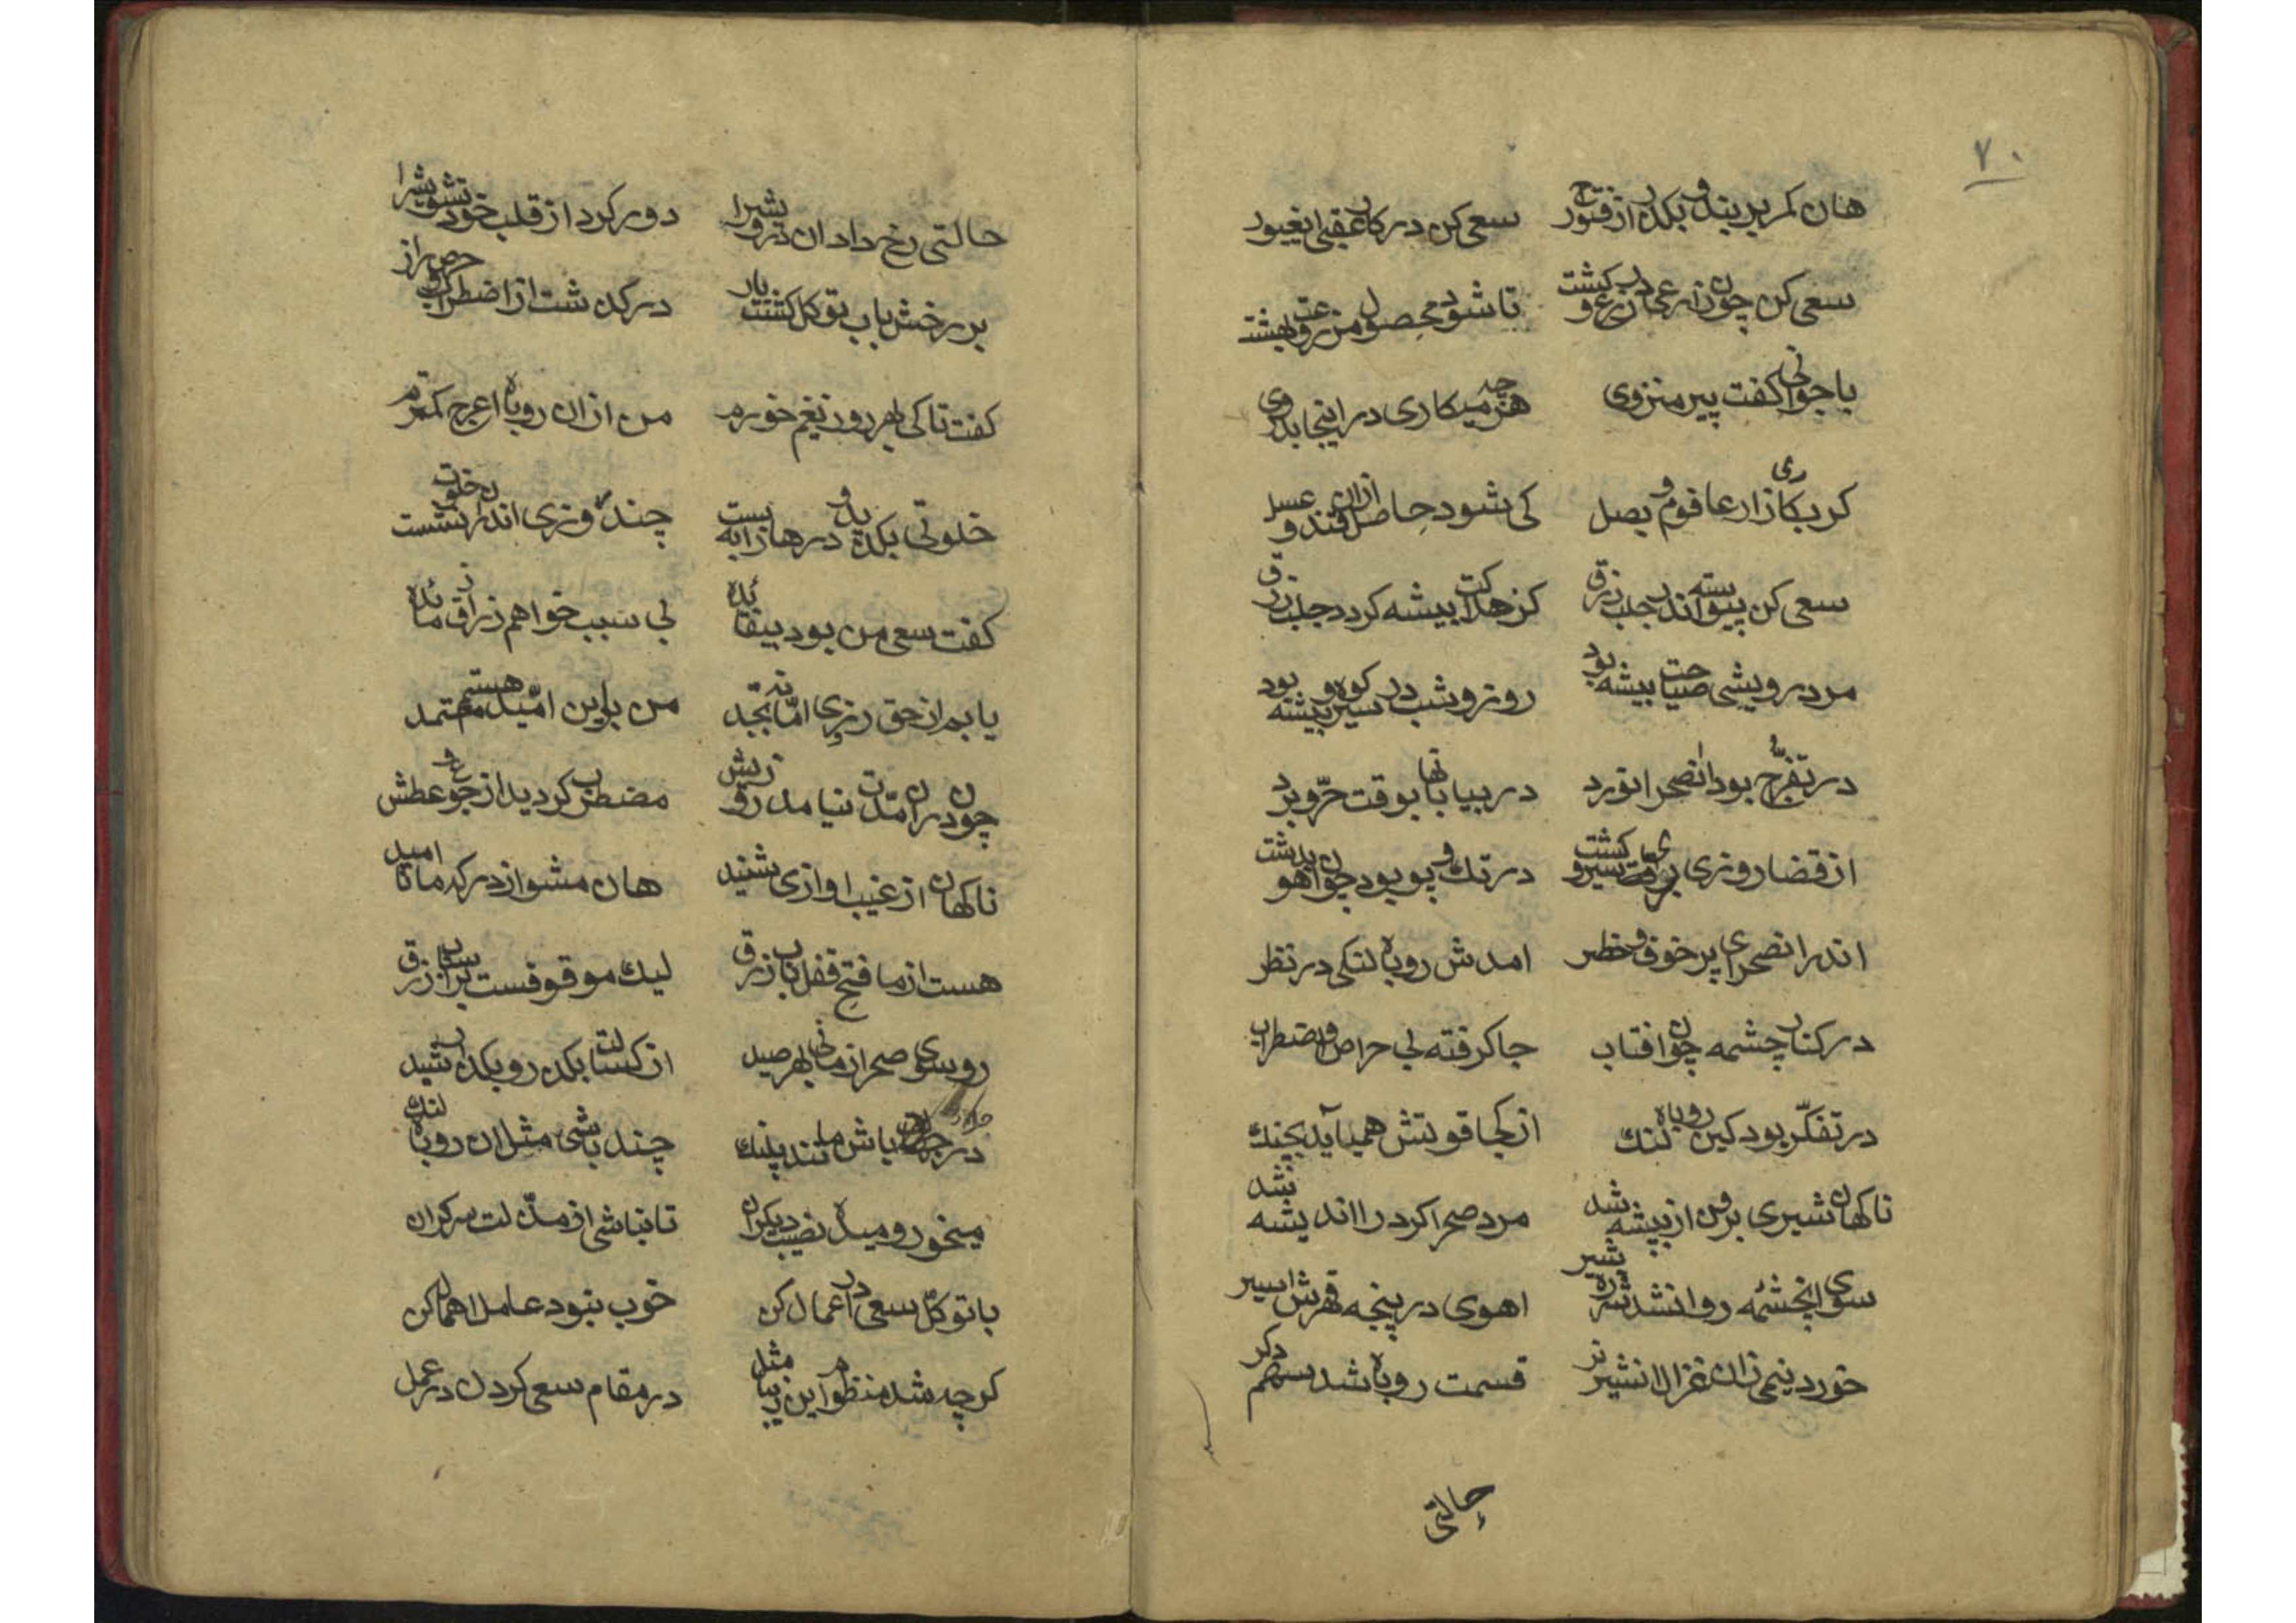 ۷۰
هان کمر بر بند و بکذر از فتور سعی کن در کار عقبی ایغیور
سعی کن چون زارعان در زرع و کشت تا شود محصول مزروعت بهشت
با جوانی کفت پیر منزوی هر چه میکاری در اینجا بدروی
کر بکاری زارعا فوم و بصل کی شود حاصل ازان قند و عسل
سعی کن پیوسته اندر جلب رزق کز هدا کت پیشه کردد جلب رزق
مرد درویشی صیاحت پیشه بود روز و شب در سیر کوه و بیشه بود
در تفرّج بود انصحرا نورد در بیابانها بوقت حرّ و برد
از قضا روزی برای سیر و کشت در تک و پو بود چون اهو بدشت
اندر انصحرای پر خوف و خطر امدش روباه لنکی در نظر
در کنار چشمه چون افتاب جا کرفته بی حراص و اضطراب
در تفکّر بود کین روباه لنک از کجا قوتش همیآید بچنک
ناکهان شیری برون از بیشه شد مرد صحرا کرد را اندیشه شد
سوی انچشمه روانشد شرزه شیر اهوی در پنجه قهرش اسیر
خورد نیمی زان غزال انشیر نر قسمت روباه شد سهم دکر
حالتی
حالتی رخ داد ان درویشرا دور کرد از قلب خود تشویشرا
بر رخش باب توکل کشت باز در کدشت از اضطراب و حرص و از
کفت تا کی بهر روزی غم خورم من از ان روباه اعرج کمترم
خلوتی بکزید و درها را به بست چند روزی اندران خلوت نشست
کفت سعی من بود بیفائده بی سبب خواهم ز رزاق مائده
یابم از حق رزق امّا نه بجد من باین امّید هستم معتمد
چون دران مدّت نیامد رزق پیش مضطرب کردید از جوع و عطش
ناکهان از غیب اوازی شنید هان مشو از درکه ما نا امید
هست از ما فتح قفل باب رزق لیک موقوفست بر اسباب رزق
رو سوی صحرا زمانی بهر صید از کسالت بکذر و بکذر ز شید
در جهان باش مانند پلنک چند باشی مثل ان روباه لنک
میخور و میده نصیب دیکران تا نباشی از مذلّت سرکران
با توکّل سعی در اعمال کن خوب نبود عامل اهمال کن
کرچه شد منظوم این زیبا مثل در مقام سعی کردن در عمل